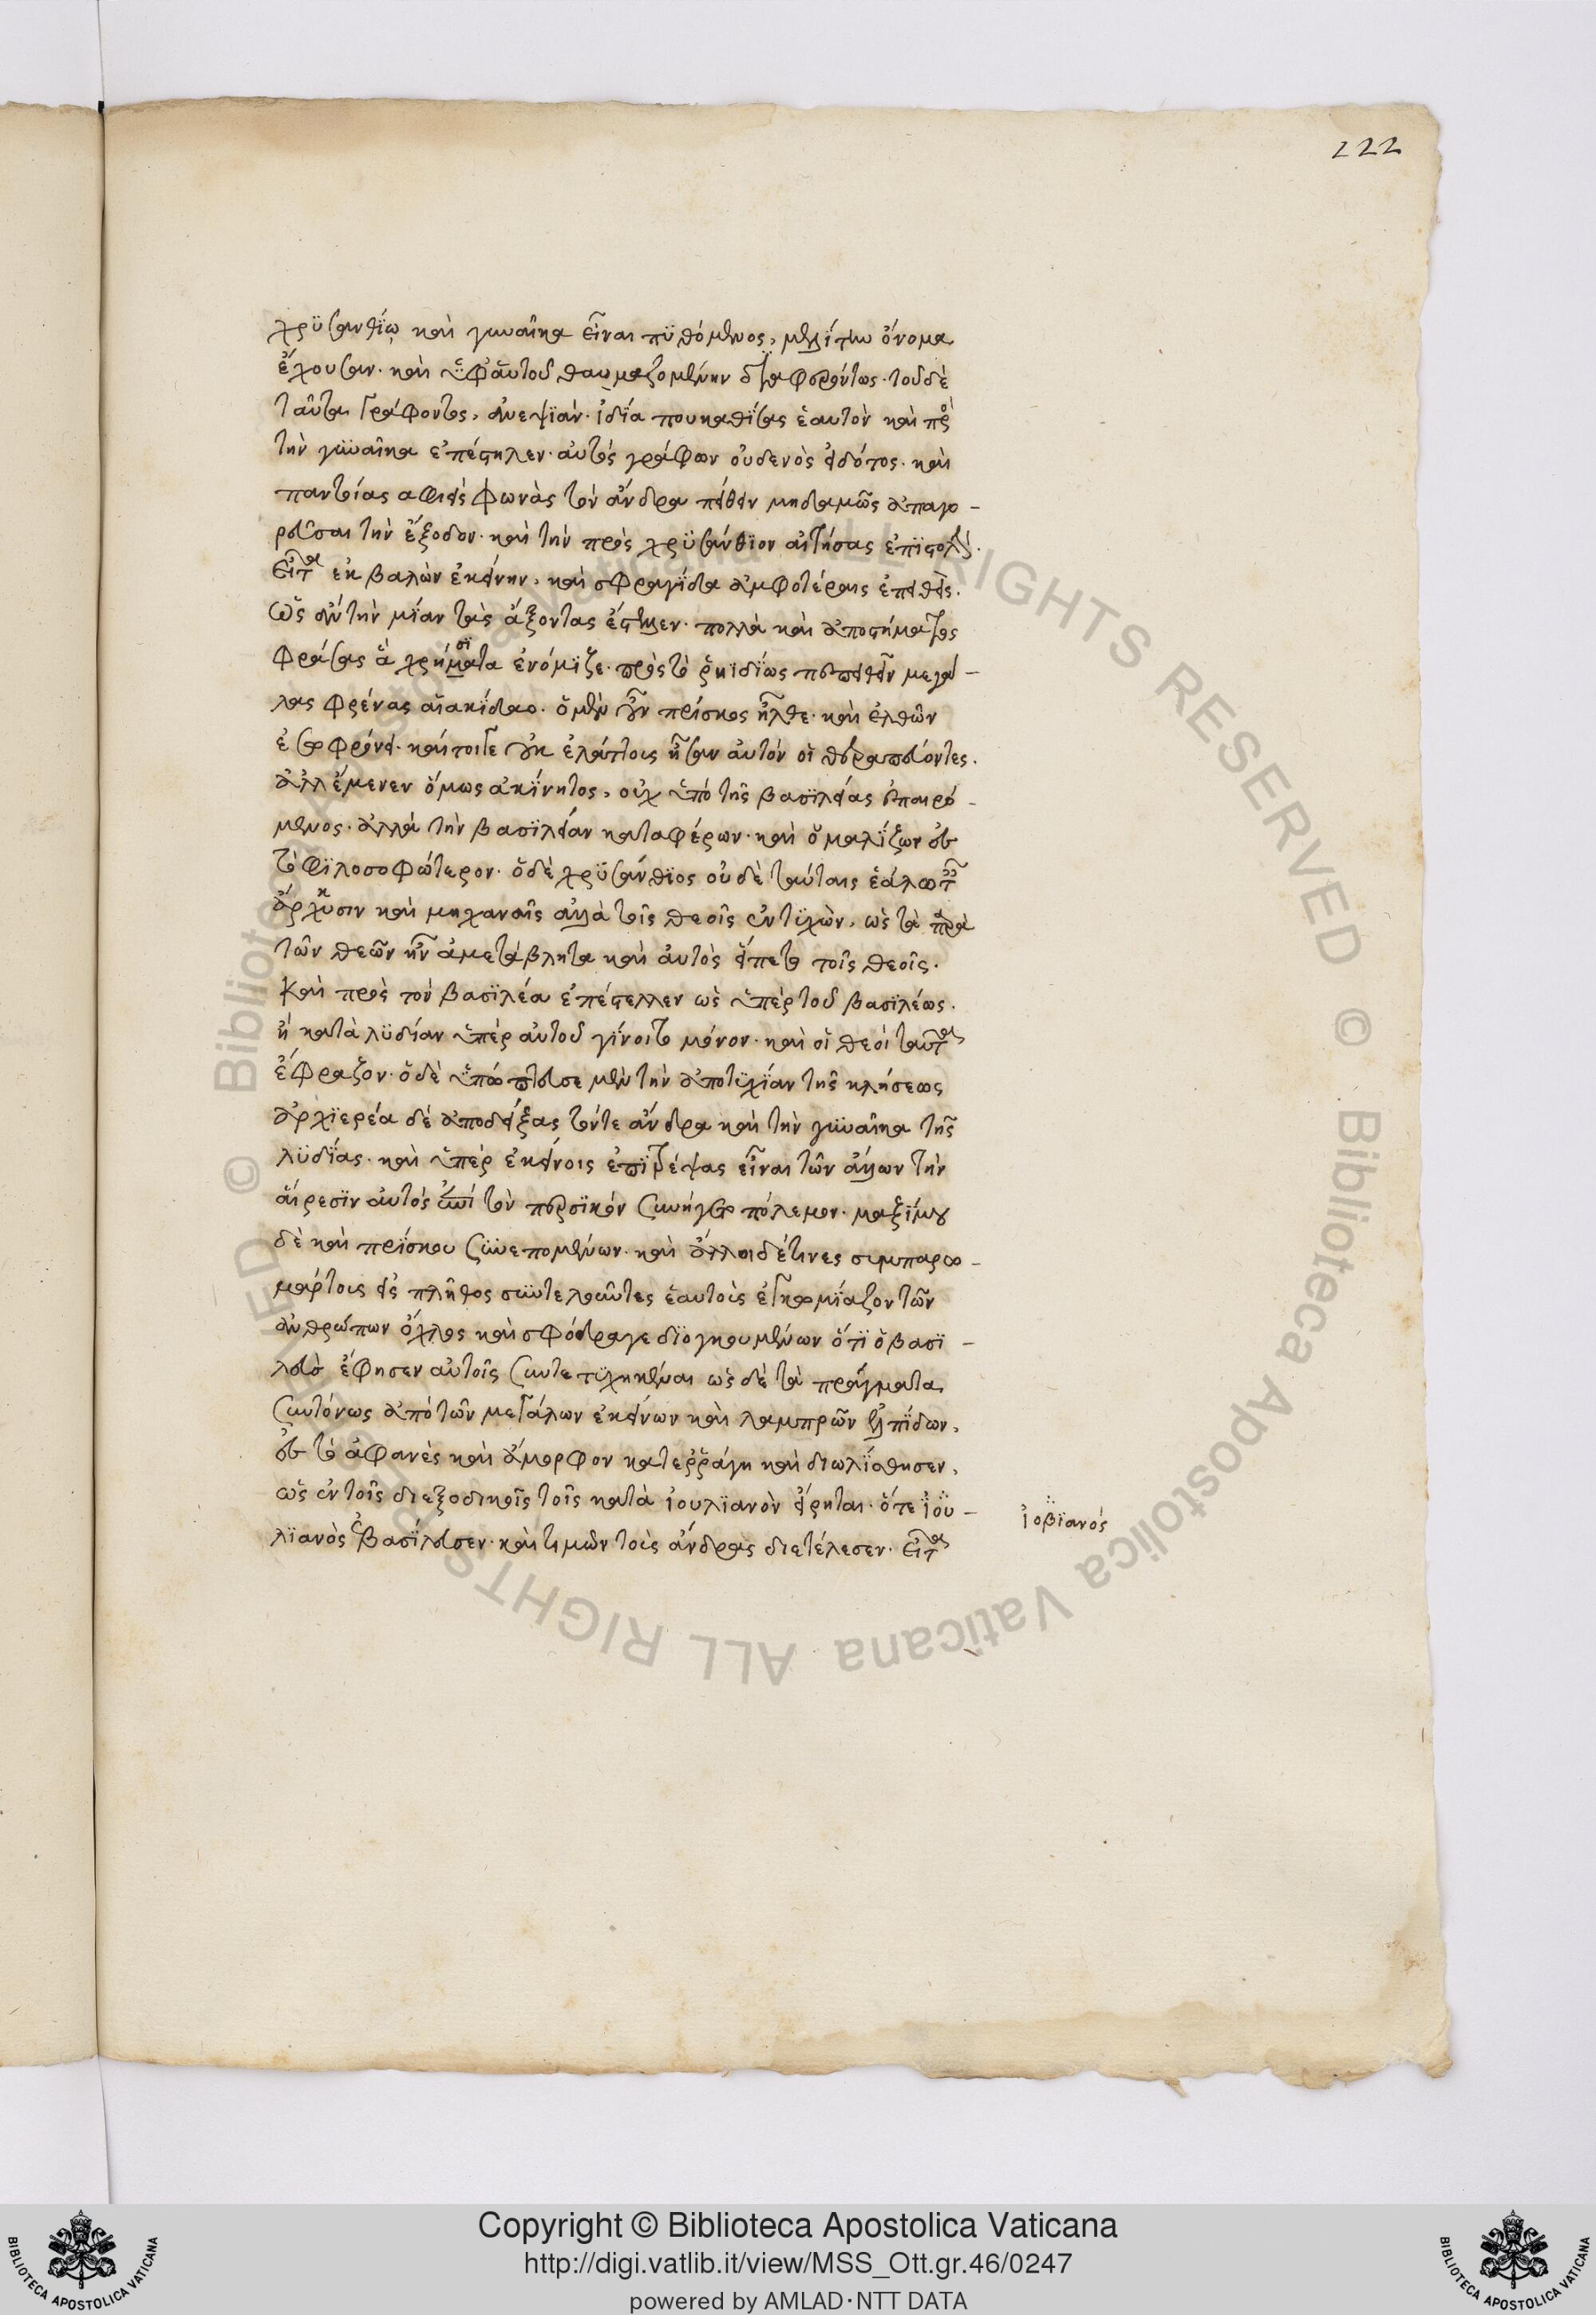 222
χρϋσανθΐῳ καὶ γυναῖκα εἶναι πϋθόμενος, μελίτην ὄνομα
ἔχουσαν. καὶ ὑφ' ἁυτοῦ θαυμαζομένην διαφερόντως. τοῦ δὲ
ταῦτα γράφοντος, ἀνεψϊάν. ἰδία που καθΐσας ἑαυτὸν καὶ πρὸς
τὴν γυναῖκα ἐπέστελεν. αὐτὸς γράφων οὐδενὸς εἰδότος. καὶ
παντοίας αφιεὶς φωνὰς τὸν ἄνδρα πείθειν μηδαμῶς ἀπαγο-
ρεῦσαι τὴν ἔξοδον. καὶ τὴν πρὸς χρϋσάνθϊον αἰτήσας ἐπϊστολήν.
εἶτα ἐκβαλὼν ἐκείνην, καὶ σφραγΐδα ἀμφοτέραις ἐπιθεὶς.
ὡς ἂν τὴν μΐαν τοὺς ἄξοντας ἔστειλεν. πολλὰ καὶ ἀποστήματος
φράσας ἃ χρήματα ἐνόμϊζε. πρὸς τὸ ῥηϊδΐως πεπιθεῖν μεγά-
λας φρένας αἰακΐδαο. ὁ μὲν οὖν πρΐσκος ἦλθε. καὶ ἐλθὼν
ἐσωφρόνει. καίτοιγε οὐκ ἐλάττους ἦσαν αὐτὸν οἱ θεραπεύοντες.
ἀλλ' ἔμενεν ὅμως ἀκΐνητος, οὐχ ὑπὸ τῆς βασϊλείας ἐπαιρό-
μενος. ἀλλὰ τὴν βασϊλείαν καταφέρων. καὶ ὁμαλΐζων ἐς
τὸ φϊλοσοφώτερον. ὁ δὲ χρϋσάνθϊος οὐδὲ ταύταις ἑάλω ταῖς
ἄρκυσιν καὶ μηχαναῖς ἀλλὰ τοῖς θεοῖς ἐντϋχὼν, ὡς τὰ παρὰ
τῶν θεῶν ἦν ἀμετάβλητα καὶ ἀυτὸς εἵπετο τοῖς θεοῖς.
καὶ πρὸς τὸν βασϊλέα ἐπέστελλεν ὡς ὑπὲρ τοῦ βασϊλέως.
ἡ κατὰ λϋδίαν ὑπὲρ αὐτοῦ γΐνοιτο μόνον. καὶ οἱ θεοὶ ταῦτα
ἔφραζον. ὁ δὲ ὑπώπτευσε μὲν τὴν ἀποτϋχΐαν τῆς κλήσεως
ἀρχϊερέα δὲ ἀποδείξας τόν τε ἄνδρα καὶ τὴν γυναῖκα τῆς
λϋδΐας. καὶ ὑπὲρ ἐκείνοις ἐπϊτρέψας εἶναι τῶν ἄλλων τὴν
αἵρεσϊν αὐτὸς ἐπὶ τὸν περσϊκὸν συνήγετο πόλεμον. μαξΐμου
δὲ καὶ πρΐσκου συνεπομένων. καὶ ἄλλοι δέ τινες συμπαρω-
μάρτουν εἰς πλῆθος συντελοῦντες ἑαυτοὺς ἐγκωμΐαζον τῶν
ἀνθρώπων ὄχλος καὶ σφόδρα γε δϊογκουμένων ὅτϊ ὁ βασϊ-
λεὺς ἔφησεν αὐτοῖς συντετϋχηκέναι ὡς δὲ τὰ πράγματα
συντόνως ἀπὸ τῶν μεγάλων ἐκείνων καὶ λαμπρῶν ἐλπΐδων.
ἐς τὸ ἀφανὲς καὶ ἄμορφον κατερράγη καὶ διωλΐσθησεν.
ὡς ἐν τοῖς διεξοδικοῖς τοῖς κατὰ ἰουλϊανὸν εἴρηται. ὅτε ἰου-
λϊανὸς ἐβασΐλευσεν. καὶ τιμῶν τοὺς ἄνδρας διετέλεσεν. εἶτα
ἰοβϊανός
Copyright © Biblioteca Apostolica Vaticana
http://digi.vatlib.it/view/MSS_Ott.gr.46/0247
powered by AMLAD·NTT DATA
BIBLIOTECA APOSTOLICA VATICANA
BIBLIOTECA APOSTOLICA VATICANA
© Biblioteca Apostolica Vaticana ALL RIGHTS RESERVED © Biblioteca Apostolica Vaticana ALL RIGHTS RESERVED